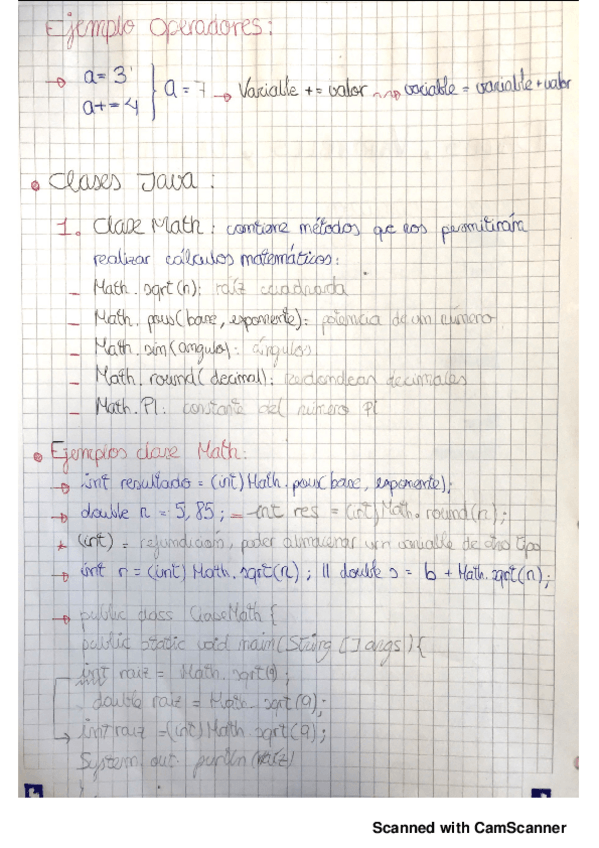 Ejemplo Operadores:
→ a = 3
a += 4 } a = 7 → Variable += valor ⇝ variable = variable + valor
• Clases Java:
1. Clase Math: contiene métodos que nos permitirán
realizar cálculos matemáticos:
– Math.sqrt(n): raíz cuadrada
– Math.pow(base, exponente): potencia de un número
– Math.sin(angulo): ángulos
– Math.round(decimal): redondear decimales
– Math.PI: constante del número PI
• Ejemplos clase Math:
→ int resultado = (int) Math.pow(base, exponente);
→ double n = 5,85; – int res = (int) Math.round(n);
* (int) = refundicion, poder almacenar un variable de otro tipo
→ int r = (int) Math.sqrt(n); || double s = b + Math.sqrt(n);
→ public class ClaseMath {
public static void main(String []args){
int raiz = Math.sqrt(9);
double raiz = Math.sqrt(9);
→ int raiz = (int) Math.sqrt(9);
System.out.println(raiz)
}
Scanned with CamScanner